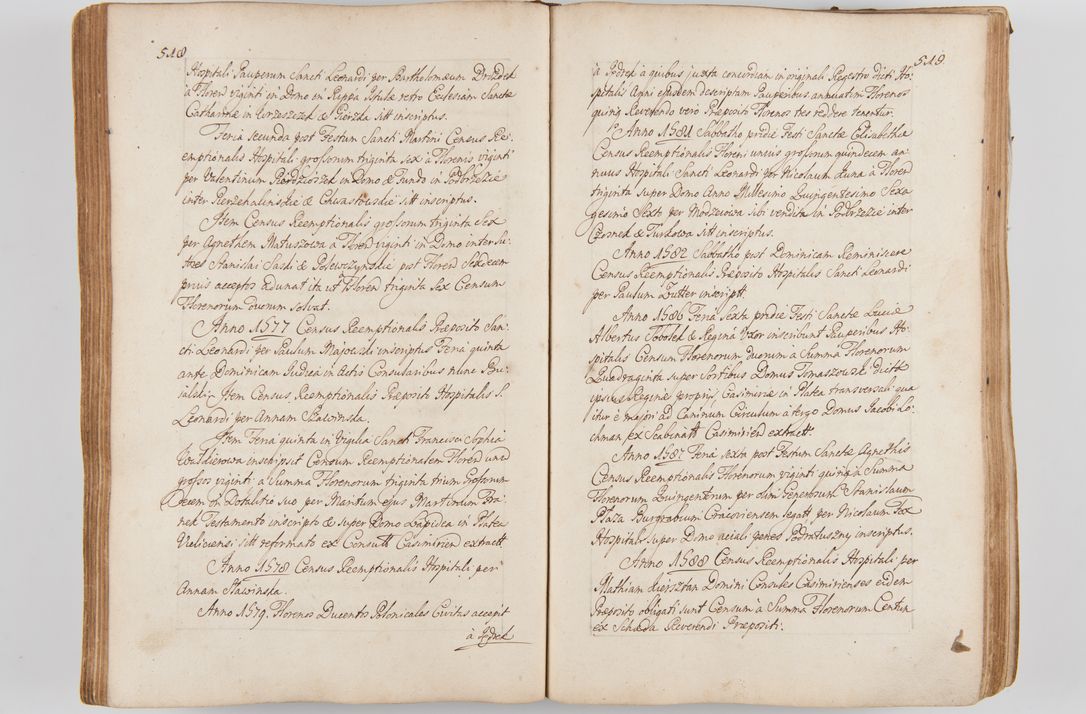 518
Hospitali Pauperum Sancti Leonardi per Bartholomæum Drozdek
a Floren viginti in Domo in Rippa Istulæ retro Ecclesiam Sanctæ
Catharinæ in Wrzeszczek & Pierzka sitt inscriptus.
Feria secunda post Festum Sancti Martini Census Re-
emptionalis Hospitali grossorum triginta sex à Florenis viginti
per Valentinum in Domo & Fundo in Podbrzezie
inter & Chwastowskie sitt inscriptus.
Item Census Reemptionalis grossorum triginta Sex
per Agnethem Matuszowa a Floren viginti in Domo inter Su-
tores Stanislai Saski & post Floren Sexdecem
prius accepto adunat ita ut Floren triginta Sex Censum
Florenorum duorum solvat.
Anno 1577 Census Reemptionalis Præposito San-
cti Leonardi per Paulum inscriptus Feria quinta
ante Dominicam Judica in Actis Consularibus hunc
Item Census Reemptionalis Præposito Hospitalis S.
Leonardi per Annam Stawinska.
Item Feria quinta in Vigilia Sancti Francisci Sophia
inscripsit Censum Reemptionalem Floren unū
grossos viginti à Summa Florenorum triginta trium Grossorum
decem in Dotalitio suo per Maritum ejus Martinum
Testamento inscripto & super Domo Lapidea in Platea
Vieliciensi sitt reformato ex Consult Casimirien extractt.
Anno 1578 Census Reemptionalis Hospitali per
Annam Stawinska.
Anno 1579. Florenos Ducentos Polonicales Civitas accepit
à
519
à à quibus juxta concordiam in originali Regestro dicti Ho-
spitalis Agni ejusdem descriptam Pauperibus annuatim Florenos
quinq Reverendo verò Præposito Florenos tres reddere tenentur.
Anno 1581 Sabbatho pridie Festi Sanctæ Elisabethæ
Census Reemptionalis Floreni unius grossorum quindecem an-
nuus Hospitali Sancti Leonardi per Nicolaum Kuna à Floren
triginta super Domo Anno Millesimo Quingentesimo Sexa
gesimo Sexto per sibi vendita in Podbrzezie inter
Czornek & Turkowa sitt inscriptus.
Anno 1582 Sabbatho post Dominicam Reminiscere
Census Reemptionalis Præposito Hospitalis Sancti Leonardi
per Paulum Butter inscriptt.
Anno 1586 Feria Sexta pridie Festi Sanctæ Luciæ
Albertus Tobolek & Regina Uxor inscribunt Pauperibus Ho-
spitalis Censum Florenorum duorum à Summa Florenorum
Quadraginta super Sortibus Domus Tomaszowski dictæ
ipsius Reginæ propriis, Casimiriæ in Platea transversali qua
itur è majori ad Caninum Circulum à tergo Domus Jacobi Lo-
chman ex Scabinalt Casimirien extractt.
Anno 1587 Feria Sexta post Festum Sanctæ Agnethis
Census Reemptionalis Florenorum viginti quinq à Summa
Florenorum Quingentorum per olim Generosum Stanislaum
Płaza Burgrabium Cracoviensem legatt per Nicolaum Fox
Hospitali super Domo aciali penes Podratuszny inscriptus.
Anno 1588 Census Reemptionalis Hospitali per
Mathiam Domini Consules Casimirienses eidem
Præposito obligati sunt Censum à Summa Florenorum Centum
ex Scheda Reverendi Præpositi: